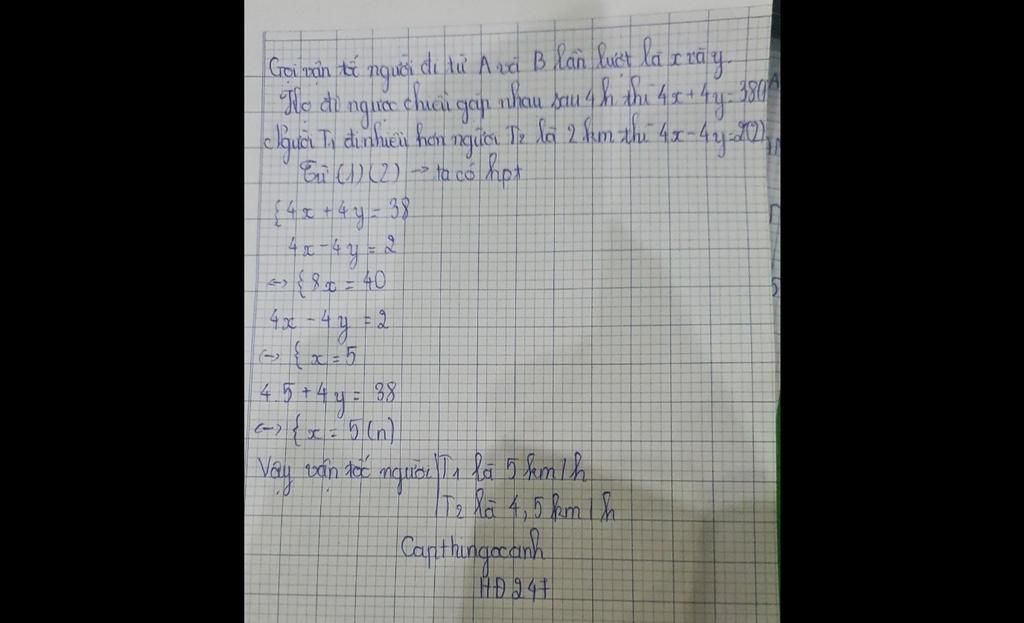 Gọi vận tố người đi từ A và B lần lượt là x và y.
Họ đi ngược chiều gặp nhau sau 4h thì 4x + 4y = 38(1)
Người T1 đi nhiều hơn người T2 là 2 km thì 4x - 4y = 2(2)
Từ (1)(2) → ta có hpt
{4x + 4y = 38
4x - 4y = 2
<-> {8x = 40
4x - 4y = 2
<-> { x = 5
4.5 + 4y = 38
<-> { x = 5 (n)
Vậy vận tốc người T1 là 5 km/h
T2 là 4,5 km/h
Capthingocanh
HĐ 247